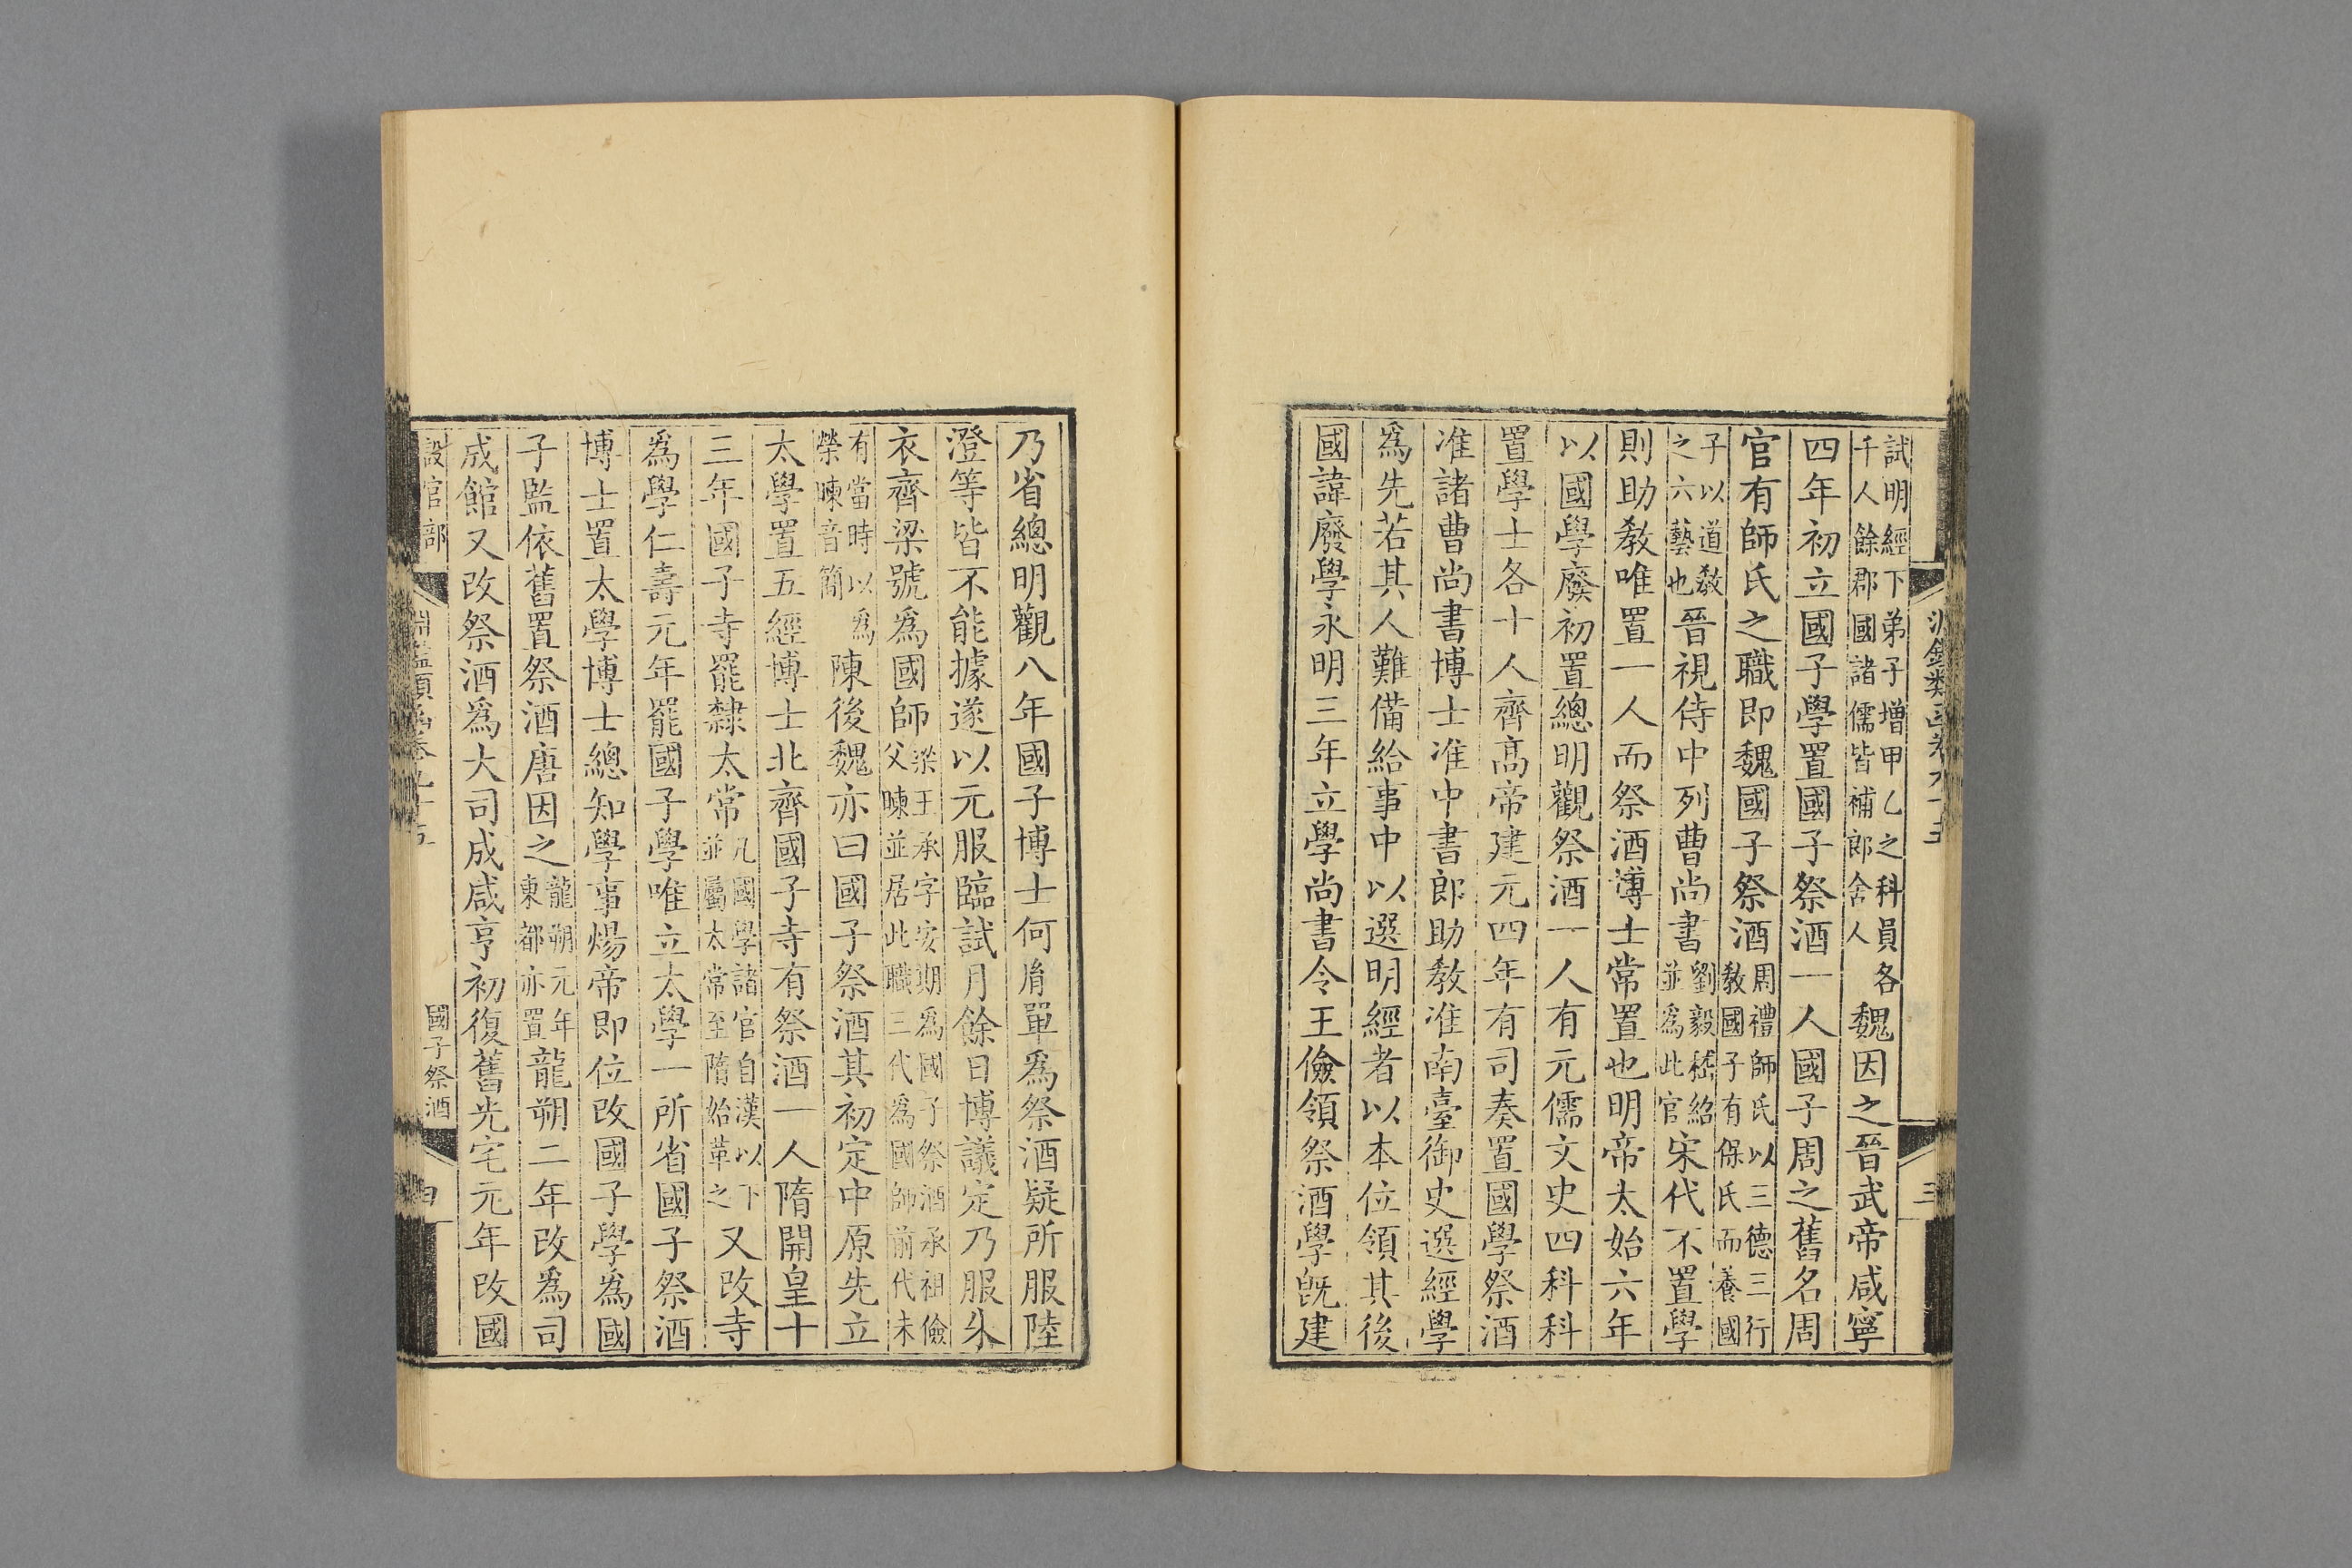 試明經下弟子增甲乙之科員各
千人餘郡國諸儒皆補郎舍人
魏因之晉武帝咸寧
四年初立國子學置國子祭酒一人國子周之舊名周
官有師氏之職即魏國子祭酒
周禮師氏以三德三行
教國子有保氏而養國
子以道教
之六藝也
晉視侍中列曹尚書
劉毅嵇紹
並為此官
宋代不置學
則助教唯置一人而祭酒博士常置也明帝太始六年
以國學廢初置總明觀祭酒一人有元儒文史四科科
置學士各十人齊高帝建元四年有司奏置國學祭酒
准諸曹尚書博士准中書郎助教准南臺御史選經學
爲先若其人難備給事中以還明經者以本位領其後
國諱廢學永明三年立學尚書令王儉領祭酒學旣建
三
乃省總明觀八年國子博士何胤單爲祭酒疑所服陸
澄等皆不能據遂以元服臨試月餘日博議定乃服朱
衣齊梁號爲國師
梁王承字安期爲國子祭酒承祖儉
父暕並居此職三代爲國師前代未
有當時以爲
榮暕音簡
陳後魏亦曰國子祭酒其初定中原先立
太學置五經博士北齊國子寺有祭酒一人隋開皇十
三年國子寺罷隸太常
凡國學諸官自漢以下
並屬太常至隋始革之
又改寺
爲學仁壽元年罷國子學唯立太學一所省國子祭酒
博士置太學博士總知學事煬帝即位改國子學爲國
子監依舊置祭酒唐因之
龍朔元年
東都亦置
龍朔二年改爲司
成館又改祭酒爲大司成咸亨初復舊光宅元年改國
設官部
國子祭酒
四